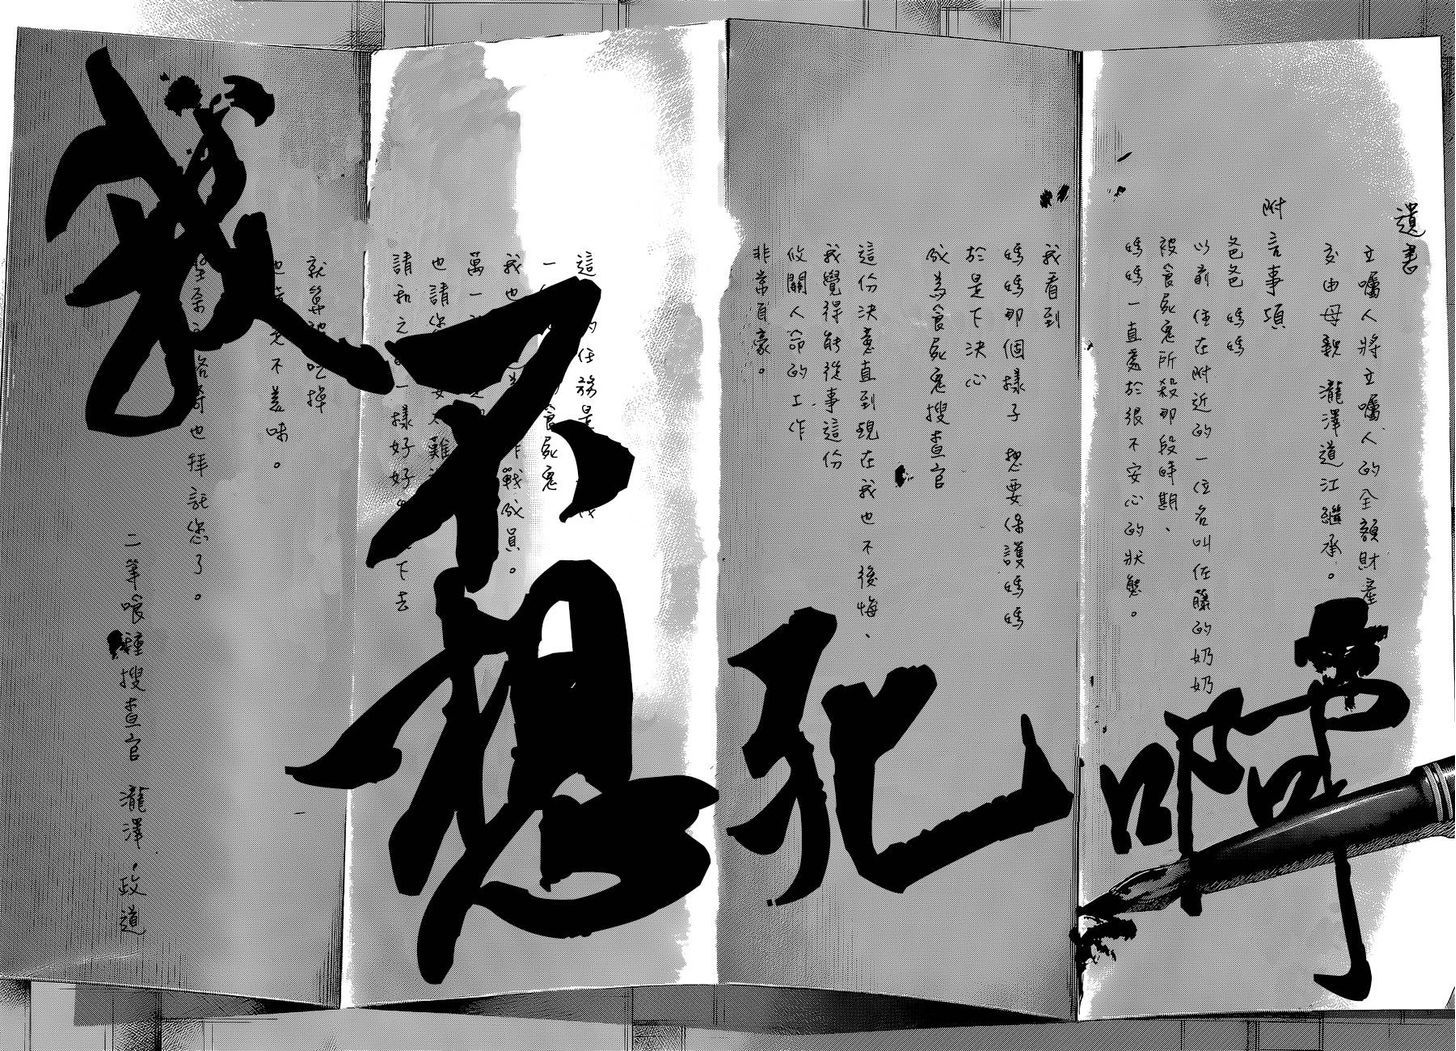 遺書
立囑人將立囑人的全額財產
交由母親 瀧澤道江繼承。
附言事項
爸爸 媽媽
以前 住在附近的一位名叫佐藤的奶奶
被食屍鬼所殺那段時期、
媽媽一直處於很不安心的狀態。
我看到
媽媽那個樣子 想要保護媽媽
於是下決心
成為食屍鬼搜查官
這份決意直到現在我也不後悔、
我覺得能從事這份
攸關人命的工作
非常自豪。
這 的任務是
一 食屍鬼
我也 作戰成員。
萬一
也請您 太難
請和之前一樣好好 下去
就算被吃掉
也 不美味。
也拜託您了。
二等喰種搜查官 瀧澤・政道
我不想死啊